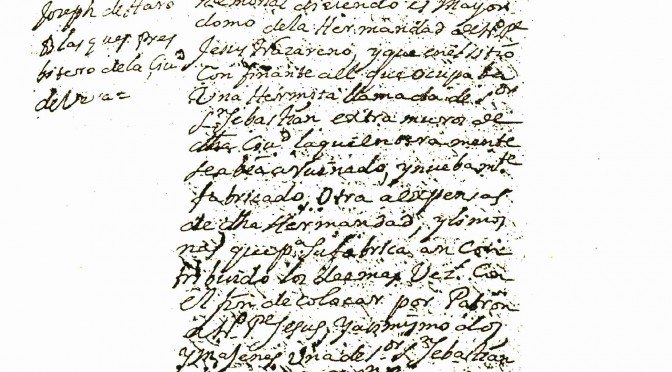 Joseph de Haro
Blasques Pres
bitero de la Ciud
de Vera=
Memorial diziendo es Mayor
domo de la Hermandad de Ntro Pe
Jesus Nazareno, y que en el sitio
Confinante al que ocupaba
Una Hermita llamada de Sor
Sn Sebastian extramuros de
dha Ciud la que enteramente
se abia arruinado, y nuebamte
fabricado, Otra a expensas
de dha Hermandad, y limos
nas que pa su fabrica, an Con
tribuido los demas Vezs Con
el fin de colocar por Patron
a Ntro Pe Jesus, y asimismo dos
Ymajenes Una de Sor Sn Sebastian